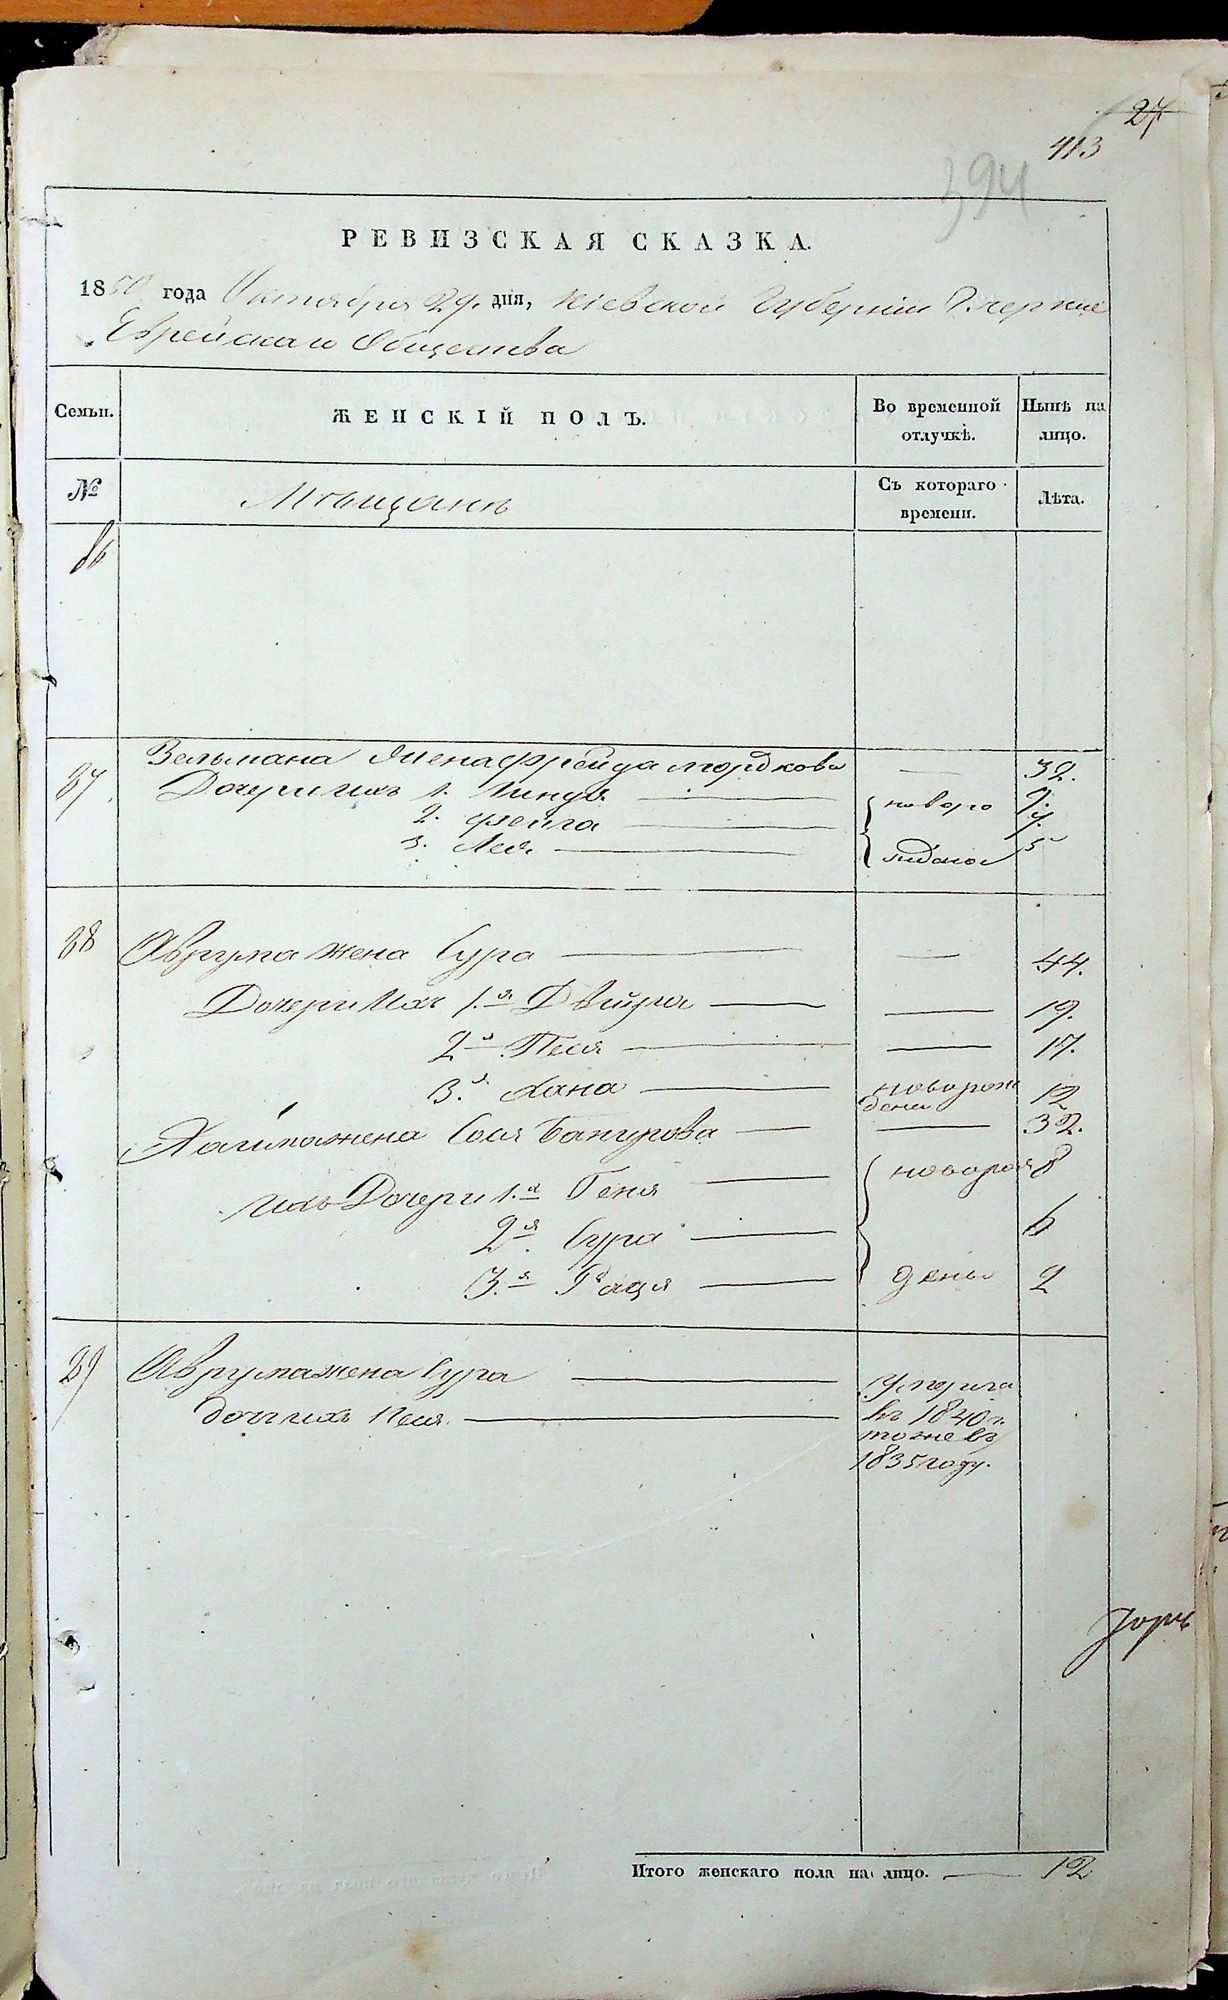 27
413
394
РЕВИЗСКАЯ СКАЗКА.
1850 года Октября 29. дня, Кіевской Губерніи
Еврейскаго Общества
Семьи.
ЖЕНСКІЙ ПОЛЪ.
Во временной отлучкѣ.
Нынѣ на лицо.
№
Мѣщанъ
Съ котораго времени.
Лѣта.
86
87
Вельмана жена Фрейда Мордкова — 32.
Дочери ихъ 1. — новоро 9.
2. Фейга — 7.
3. Лея — ждены 5
88
Аврума жена Сура — 44.
Дочери ихъ 1.я Двейра — 19.
2я Песя — 17.
3.я Хана — новорож 12
дена
Хаима жена Сося — 32.
ихъ Дочери 1.я Геня — новорож 8
2я. Сура — 6
3.я Рася — дены 2
89
Аврума жена Сура — умерла
въ 1840 г.
дочь ихъ Песя. — тоже въ
1835 году.
Итого женскаго пола на лицо. — 12